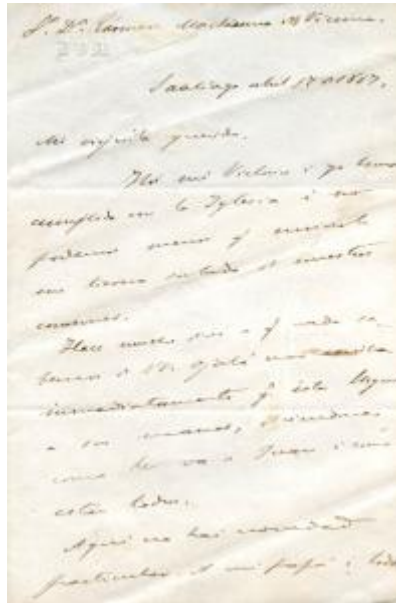 Sª. Dª. Carmen Mackenna de Vicuña.
Santiago abril 17 de 1867.
Mi viejita querida.
Hoi mi Victoria i yo hemos
cumplido en la Iglesia i no
podemos menos q enviarle
una tierna de nuestros
corazones.
Hace mucho dias a q nada sa-
bemos de Ud. Ojalá nos escriba
inmediatamente q ésta llegue
a sus manos, diciendonos
como le va a Juan i como
están todos.
Aqui no hai novedad
particular. A mi papá i todos